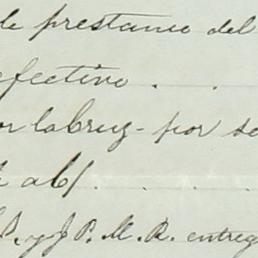 le prestamo del
efectivo . .
or la Cruz - por se
ab/. . . .
P. y J. P. M. R. entreg